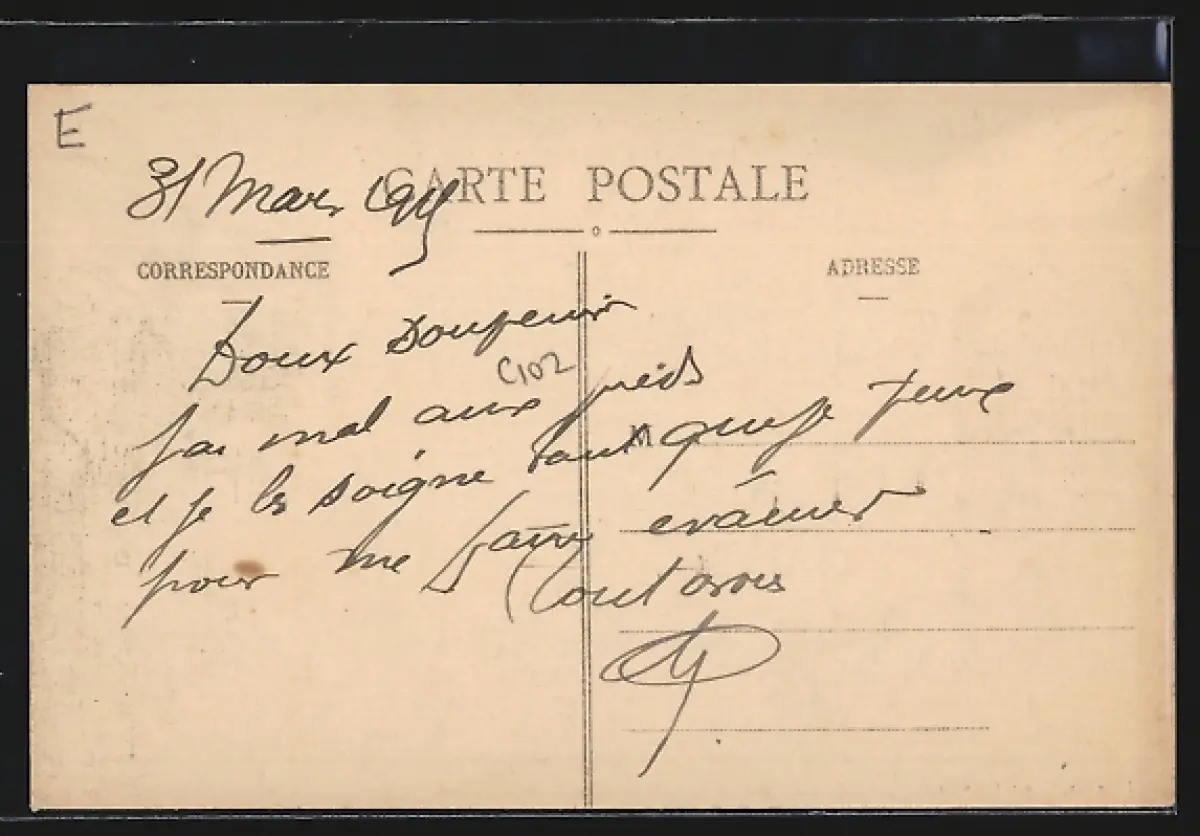 E
31 Mars 1915
CARTE POSTALE
CORRESPONDANCE
ADRESSE
Doux souvenir
C102
J'ai mal aux pieds
et je les soigne tant que je peux
pour me faire évacuer
Tout